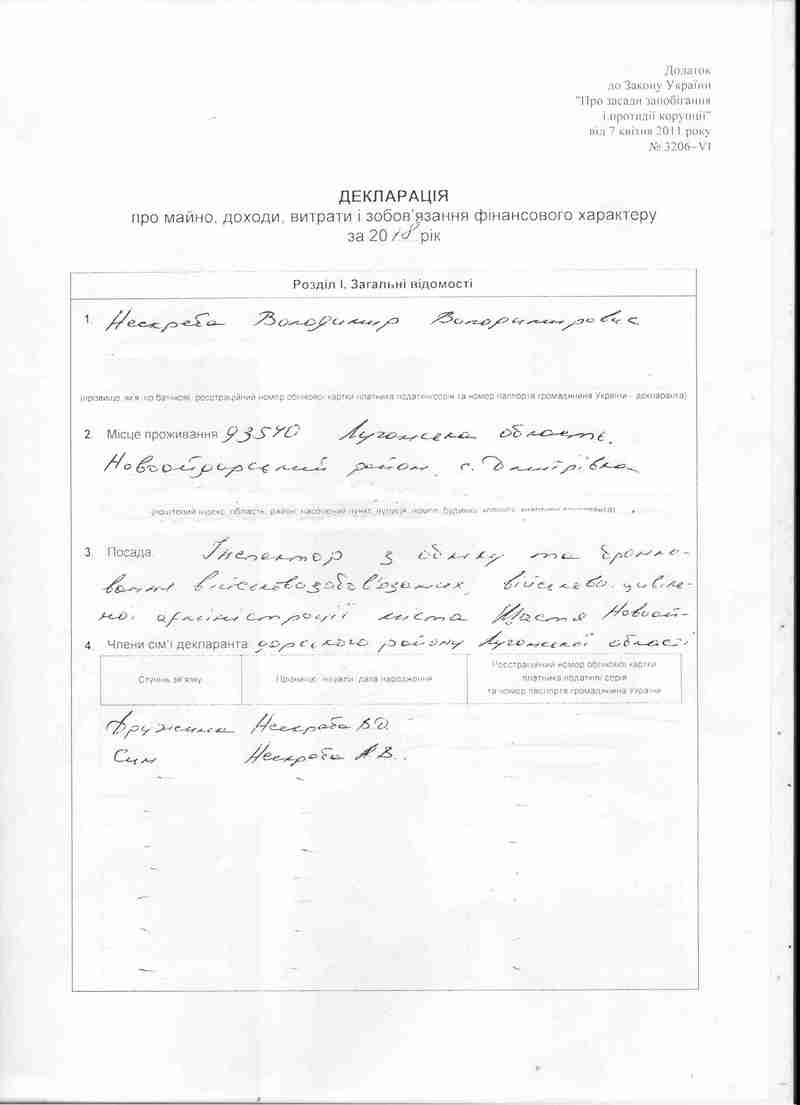 Додаток
до Закону України
"Про засади запобігання
і протидії корупції"
від 7 квітня 2011 року
№ 3206-VI
ДЕКЛАРАЦІЯ
про майно, доходи, витрати і зобов'язання фінансового характеру
за 2018 рік
Розділ I. Загальні відомості
1. Нескреба Володимир Володимирович
(прізвище, ім'я, по батькові, реєстраційний номер облікової картки платника податків/серія та номер паспорта громадянина України - декларанта)
2. Місце проживання 93540 Луганська область,
Новоайдарський район, с. Дмитрівка
(поштовий індекс, область, район, населений пункт, вулиця, номер будинку, квартири
3. Посада: Інспектор з обліку та броню-
вання військовозобов'язаних, військово-цивіль-
ної адміністрації міста Щастя Новоай-
4. Члени сім'ї декларанта дарського району Луганської області
Ступінь зв'язку
Прізвище, ініціали, дата народження
Реєстраційний номер облікової картки
платника податків/ серія
та номер паспорта громадянина України
Дружина Нескреба В.О.
Син Нескреба А.В.